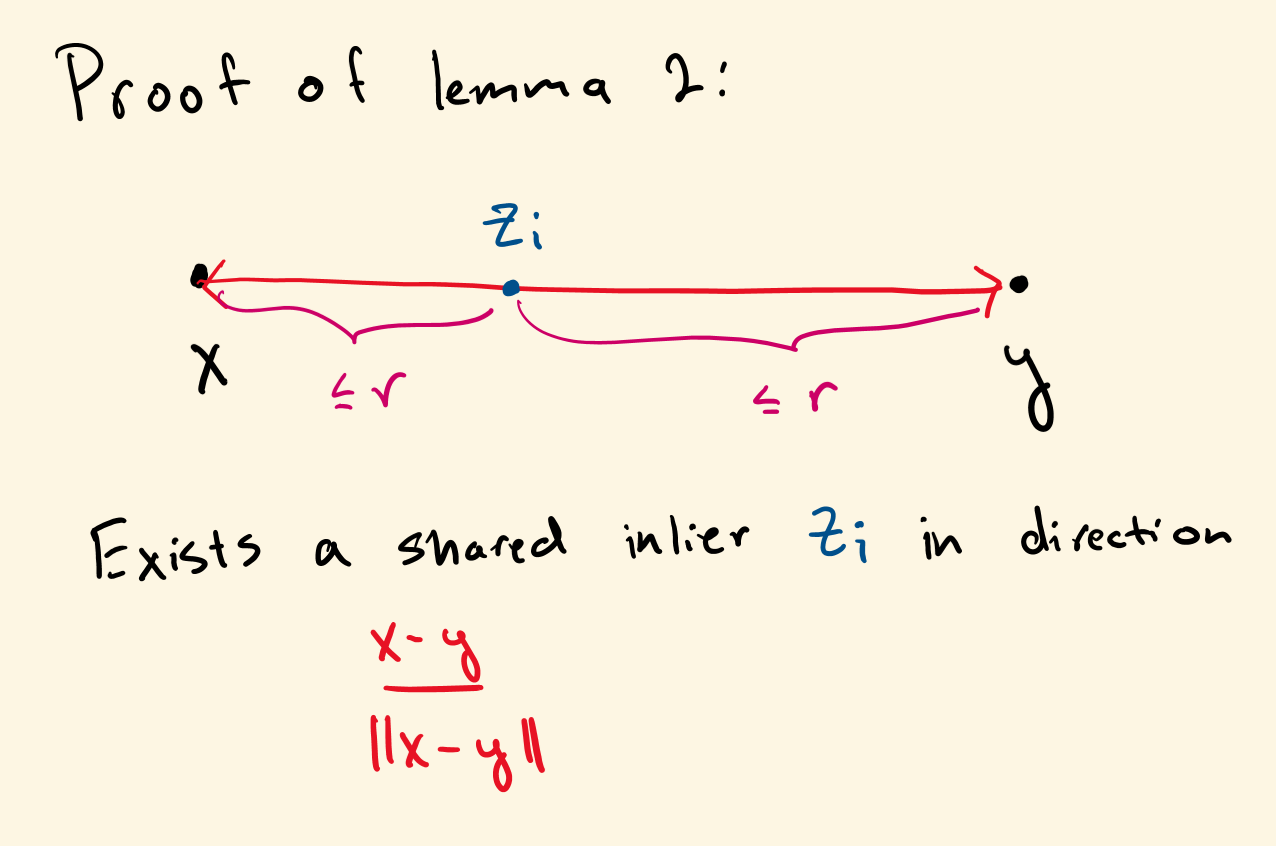 Proof of lemma 2:
Zi
x
y
≤ r
≤ r
Exists a shared inlier Zi in direction
x - y
||x - y||